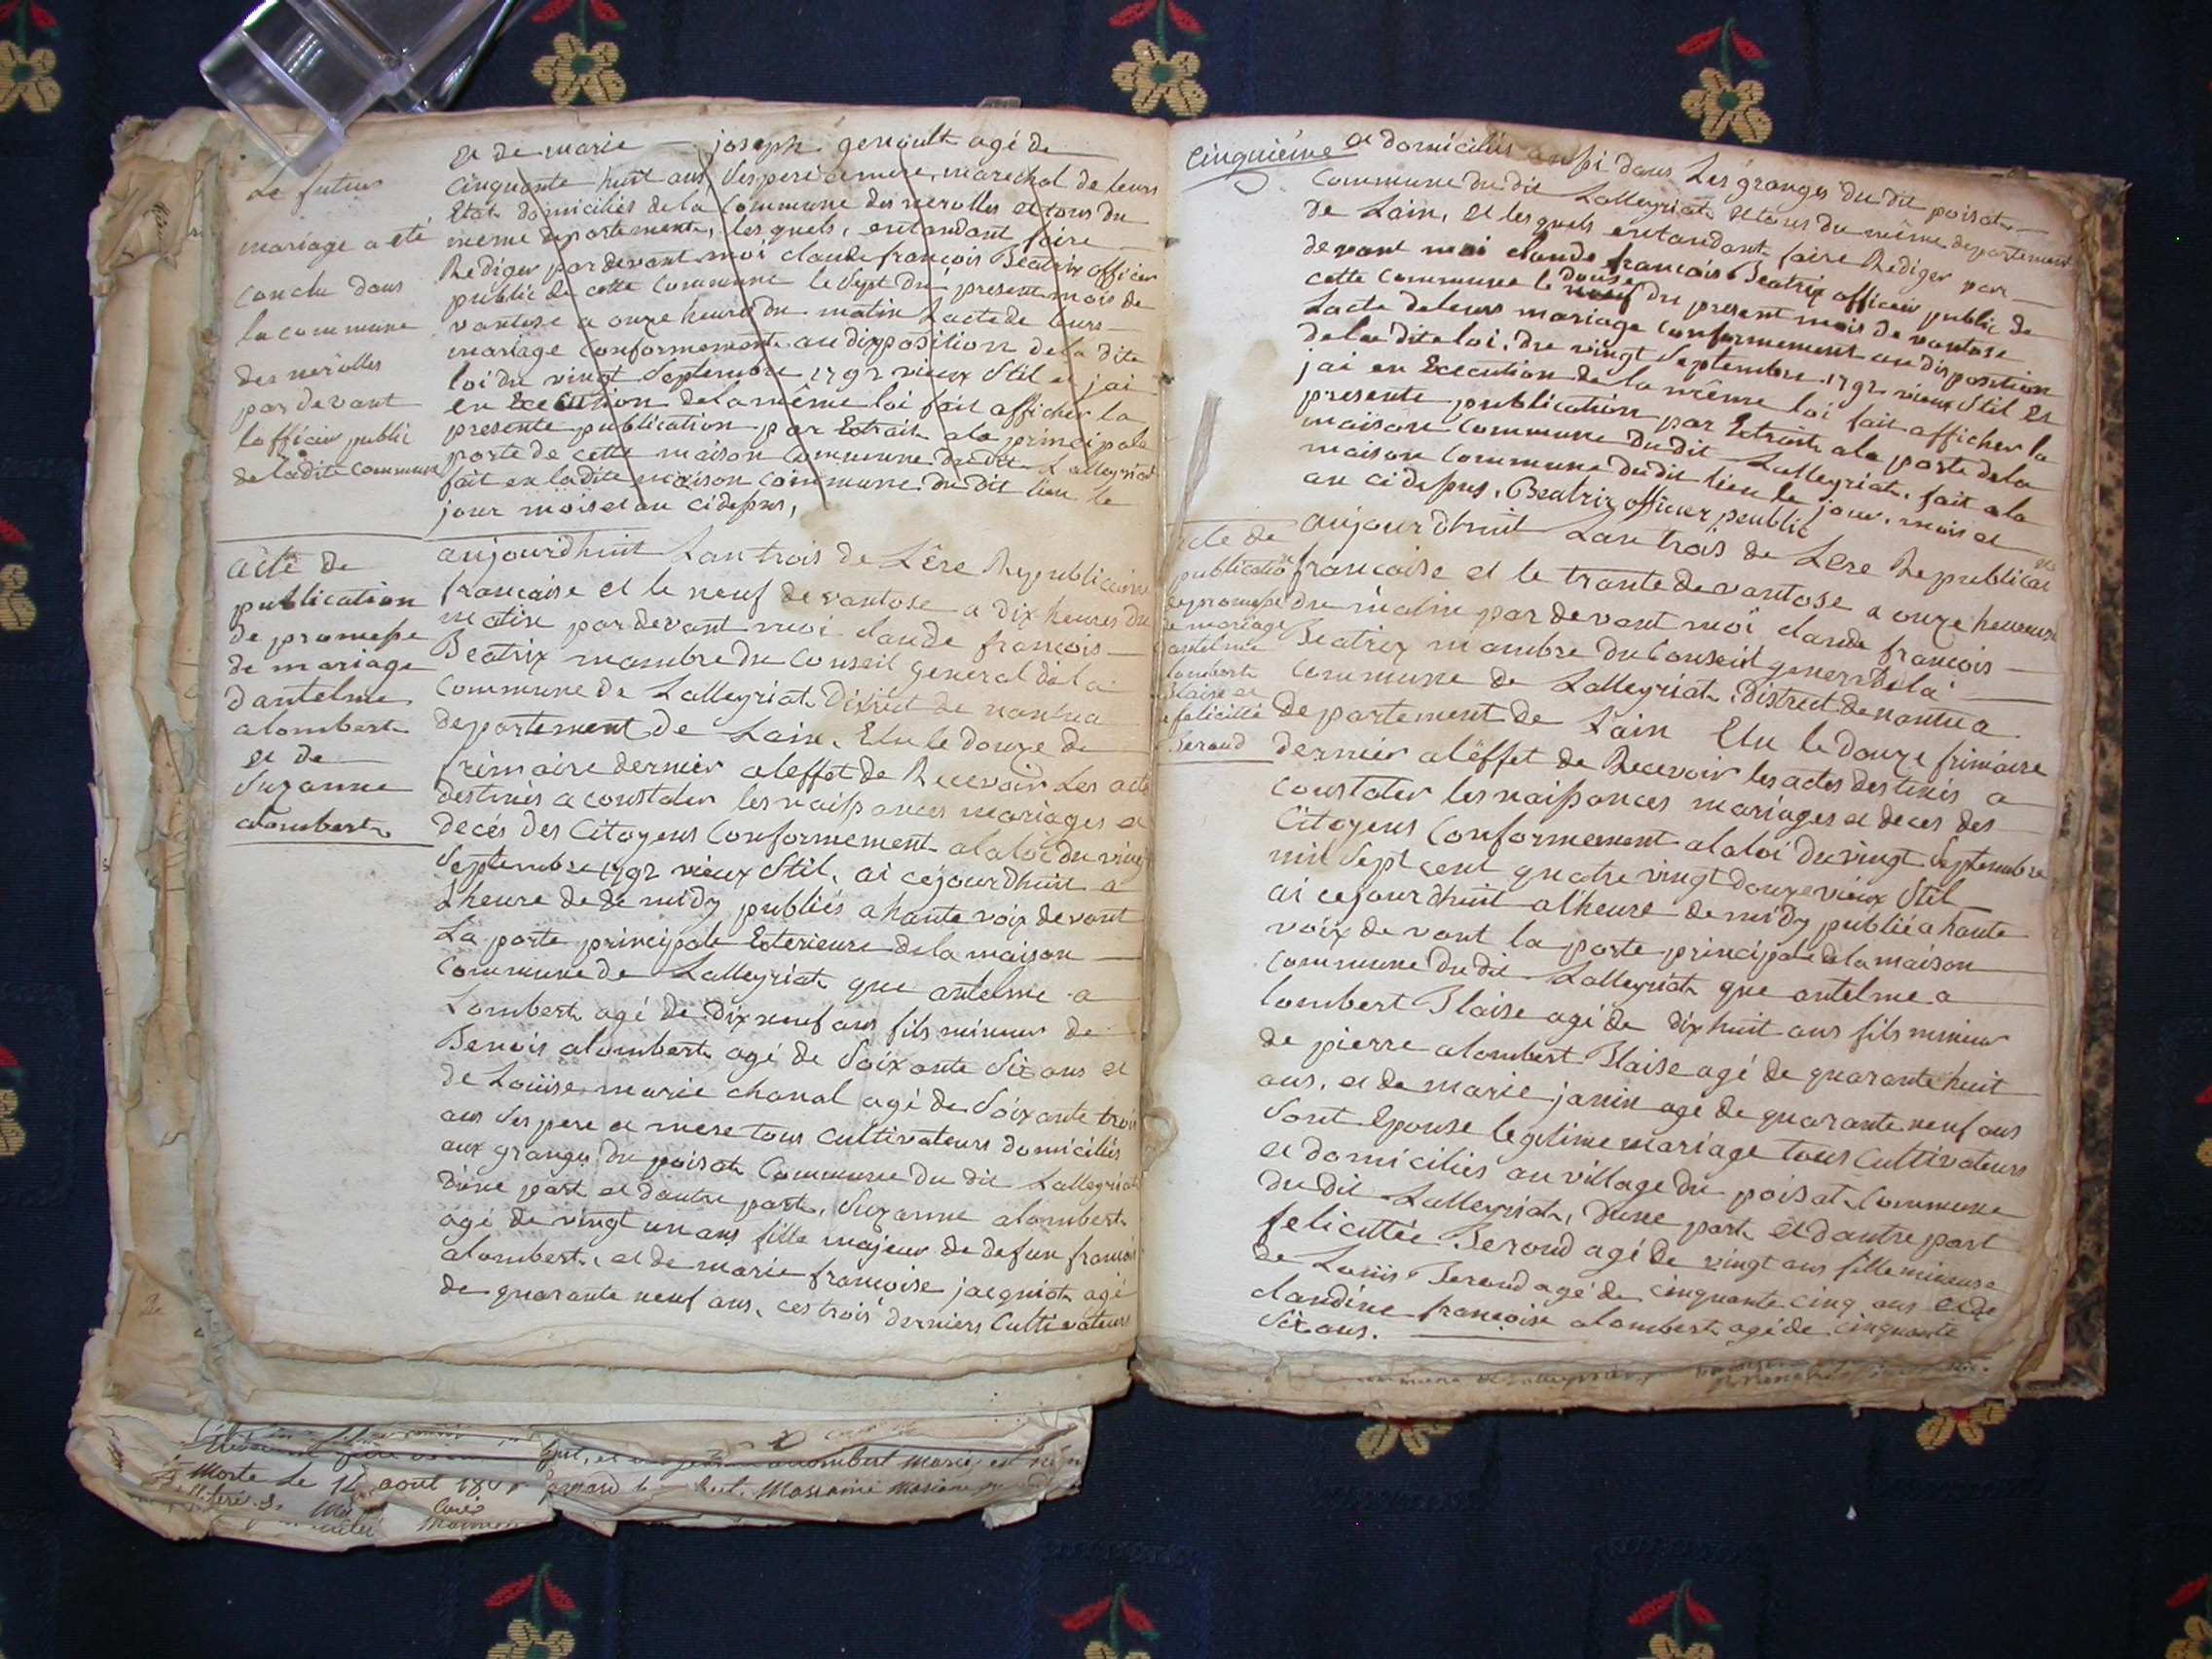 Le futur
mariage a eté
conclu dans
la commune
des nérolles
pardevant
lofficier public
de ladite commune
et de marie joseph genoult agé de
cinquante huit ans, ses pere et mere, marechal de leurs
Etat domiciliés de la commune des nerolles et tous du
meme departement, lesquels, entandant faire
Rediger pardevant moi claude francois Beatrix officier
public de cette commune le sept du present mois de
vantose a onze heures du matin Lacte de leurs
mariage conformement au disposition de la dite
loi du vingt Septembre 1792 vieux Stil et jai
en Execution de la même loi fait afficher la
presente publication par Extrait a la principale
porte de cette maison commune du dit Lalleyriat
fait en la dite maison commune du dit lieu le
jour mois et an cidessus,
acte de
publication
de promesse
de mariage
dantelme
alombert
et de
Suzanne
alombert
aujourdhuit Lan trois de Lêre Republicaine
francaise et le neuf de vantose a dix heures du
matin pardevant moi claude francois
Beatrix mambre du Conseil general de la
Commune de Lalleyriat District de nantua
departement de Lain, Elu le douze de
frimaire dernier al effet de Recevoir Les acte
destinés a constater les naissances mariages et
decés des Citoyens Conformement a la loi du vingt
Septembre 1792 vieux Stil, ai cejourdhuit a
Lheure de de midy publiés a haute voix devant
La porte principale Exterieure de la maison
Commune de Lalleyriat que antelme a
Lombert agé de Dix neuf ans fils mineur de
Benois alombert agé de Soixante Six ans et
de Loüise marie chanal agé de Soixante trois
ans Ses pere et mere tous Cultivateurs domiciliés
aux granges du poisat Commune du dit Lalleyriat
dune part et dautre part, Suzanne alombert
agé de vingt un ans fille majeur de defun francois
alombert, et de marie francoise jacquiot agé
de quarante neuf ans, ces trois derniers Cultivateurs
Cinquiéme
et domiciliés aussi dans Les granges du dit poisat
Commune du dit Lalleyriat et tous du même departement
de Lain, et lesquels entandant faire Rediger par
devant moi claude francois Beatrix officier public de
cette commune le neuf douse du present mois de vantose
Lacte de leurs mariage conformement au disposition
de la dite loi, du vingt Septembre 1792 vieux Stil et
jai en Execution de la même loi fait afficher la
presente publication par Extrait a la porte de la
maison Commune du dit Lalleyriat, fait a la
maison Commune du dit lieu le jour, mois et
an cidessus, Beatrix officier peublic
acte de
publication
de promesse
de mariage
dantelme
lombert
Blaise et
de felicitté
Beroud
aujourdhuit Lan trois de Lere Republicai
francaise et le trante de vantose a onze heures
du matin pardevant moi claude francois
Beatrix mambre du Conseil general de la
Commune de Lalleyriat, District de nantua
departement de Lain Elu le douze frimaire
dernier al éffet de Recevoir les actes destinés a
Constater les naissances mariages et deces des
Citoyens Conformement a la loi du vingt Septembre
mil Sept cent quatre vingt douze vieux Stil
ai cejourdhuit a lheure de midy publié a haute
voix devant la porte principale de la maison
commune du dit Lalleyriat que antelme a
lombert Blaise agé de dix huit ans fils mineur
de pierre alombert Blaise agé de quarante huit
ans, et de marie janin agé de quarante neuf ans
Sont Epouse legitime mariage tous Cultivateurs
et domiciliés au village du poisat Commune
du dit Lalleyriat, dune part et dautre part
felicittée Beroud agé de vingt ans fille mineure
de Loüis Beroud agé de cinquante cinq ans et de
claudine francoise alombert agé de cinquante
Six ans.
Morte le 12 aout